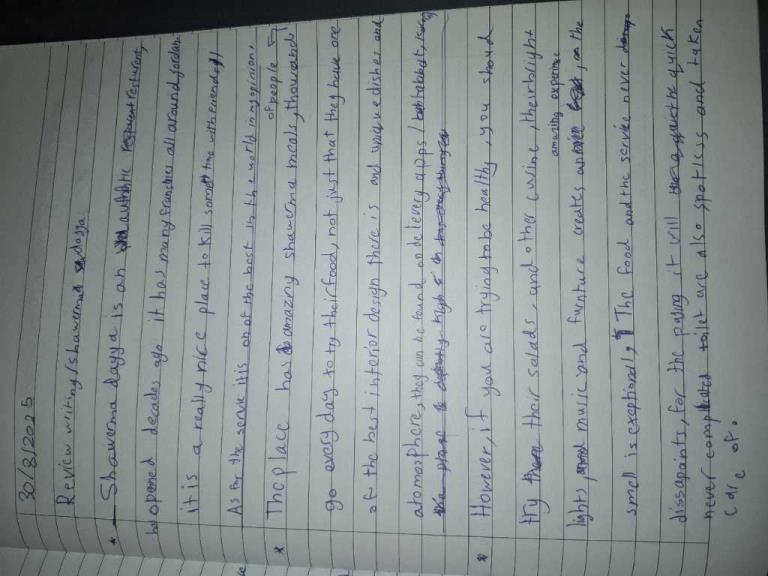 30/8/2025
Review writing/shawerma dayya
* Shawerma dayya is an authntic resturent,
opened decades ago it has many franchies all around jordan.
it is a really nice place to kill some time with friends,
As for the servie it is on of the best in the world in my opinion.
* The place has amaziny shawerma meals, thousands of people
go every day to try their food, not just that they have one
of the best interior design there is and unique dishes and
atomosphere, they can be found on delevery apps/
* However, if you are trying to be healthy, you should
try their salads, and other cuvine, their bright
lights, music and furnture creates an amazing experince, the
smell is exceptionally, The food and the servise never
dissapoints, for the prying it will quick
never complicated toilet are also spotless and taken
care of.